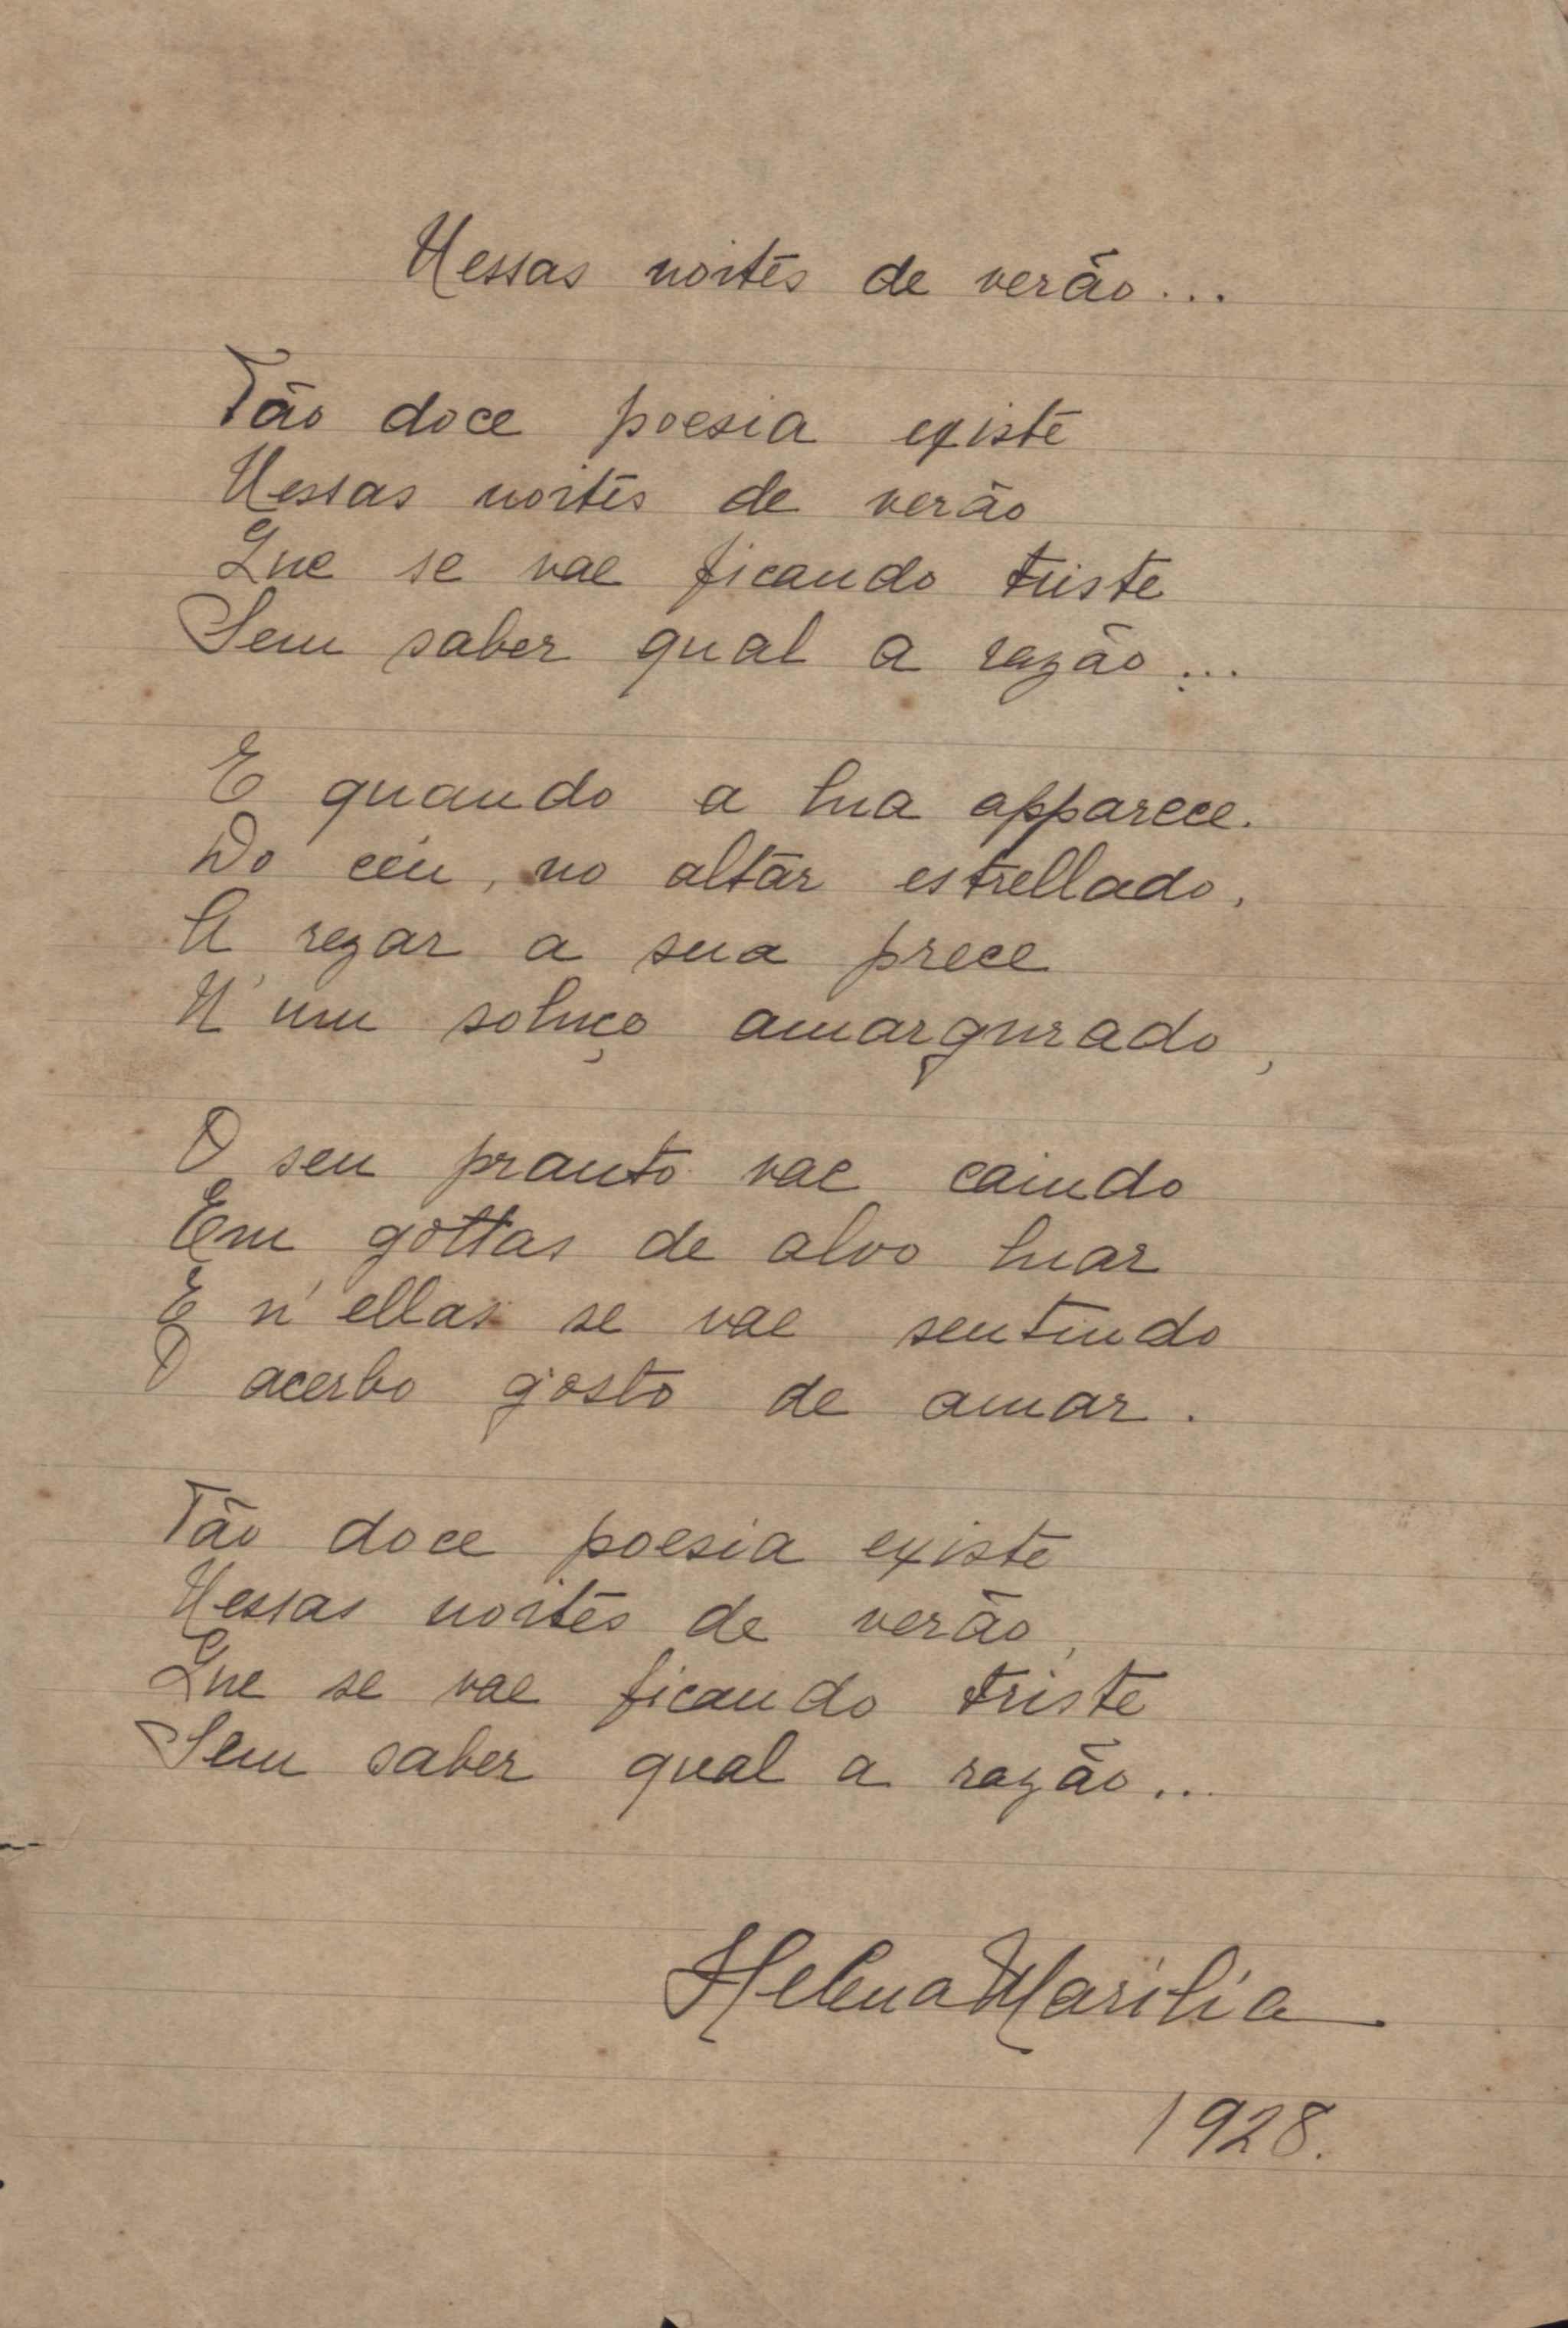 Nessas noites de verão...
Tão doce poesia existe
Nessas noites de verão
Que se vae ficando triste
Sem saber qual a razão...
E quando a lua apparece.
Do céu, no altar estrellado,
A rezar a sua prece
N'um soluço amargurado,
O seu pranto vae caindo
Em gottas de alvo luar
E n'ellas se vae sentindo
O acerbo gosto de amar.
Tão doce poesia existe
Nessas noites de verão,
Que se vae ficando triste
Sem saber qual a razão...
Helena Marilia
1928.